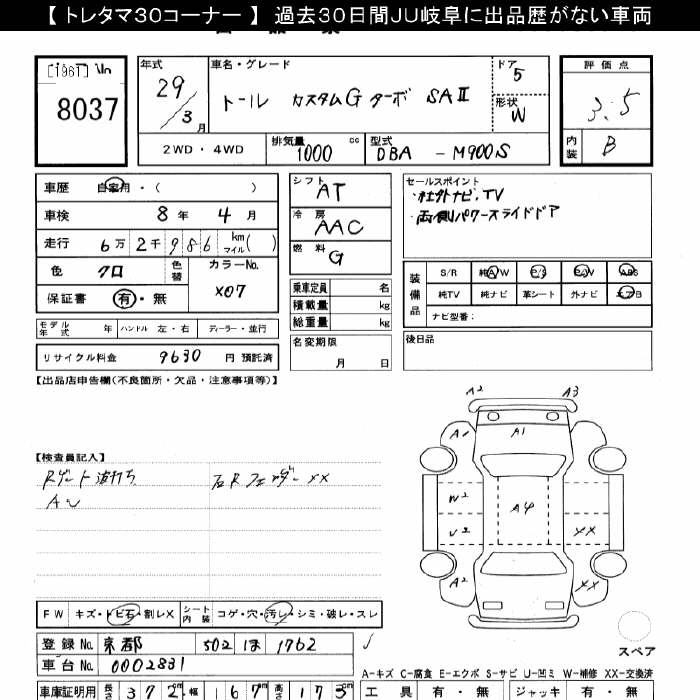 【 トレタマ30コーナー 】 過去30日間JU岐阜に出品歴がない車両
8037
年式
29/3月
車名・グレード
トール カスタムG ターボ SAⅡ
ドア
5
形状
W
評価点
3.5
内装
B
2WD・4WD
排気量
1000 cc
型式
DBA - M900S
車歴 自家用・( )
車検 8年 4月
走行 6万 2千 9 8 6 km マイル( )
色 クロ
色替
カラーNo.
X07
保証書 有・無
モデル年式 年 ハンドル 左・右 ディーラー・並行
リサイクル料金 9630 円 預託済
シフト
AT
冷房
AAC
燃料
G
乗車定員 名
積載量 kg
総重量 kg
名変期限
月 日
セールスポイント
・社外ナビ.TV
・両側パワースライドドア
装備品
S/R 純A/W P/S P/W ABS
純TV 純ナビ 革シート 外ナビ エアB
ナビ型番:
後日品
【出品店申告欄(不良箇所・欠品・注意事項等)】
【検査員記入】
Rゲート波打ち 右Rフェンダー XX
AU
A2 A3
A1 A1
W2 A4
U2 XX
A2 XX
スペア
FW キズ・トビ石・割レX シート内装 コゲ・穴・汚レ・シミ・破レ・スレ
登録No. 京都 502 ほ 1762
車台No. 0002831
A-キズ C-腐食 E-エクボ S-サビ U-凹ミ W-補修 XX-交換済
車庫証明用 長さ 372cm 幅 167cm 高さ 173cm
工具 有・無 ジャッキ 有・無